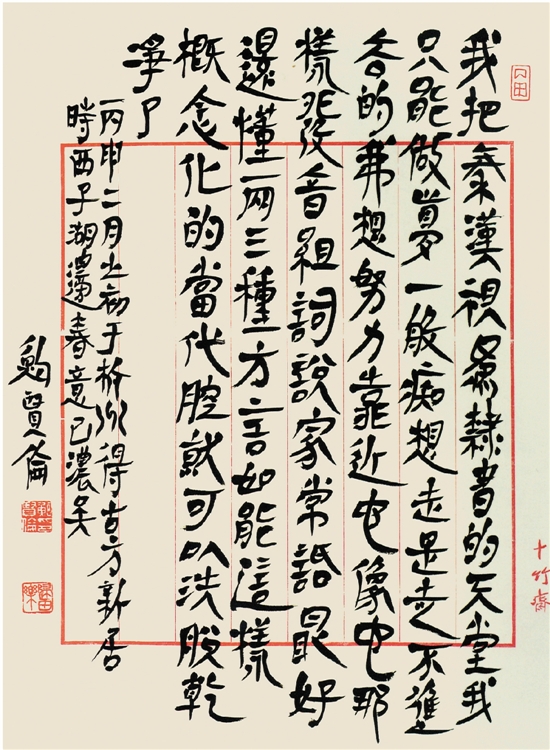 我把秦漢視爲隸書的天堂我
只能做夢一般痴想走是走不進
去的 想努力靠近它像它那
樣發音組詞說家常話最好
還懂兩三種方言如能這樣
概念化的當代腔就可以洗脫乾
淨了
丙申二月之初于杭州得古方新居
時西子湖邊春意已濃矣
鮑賢倫
十竹齋